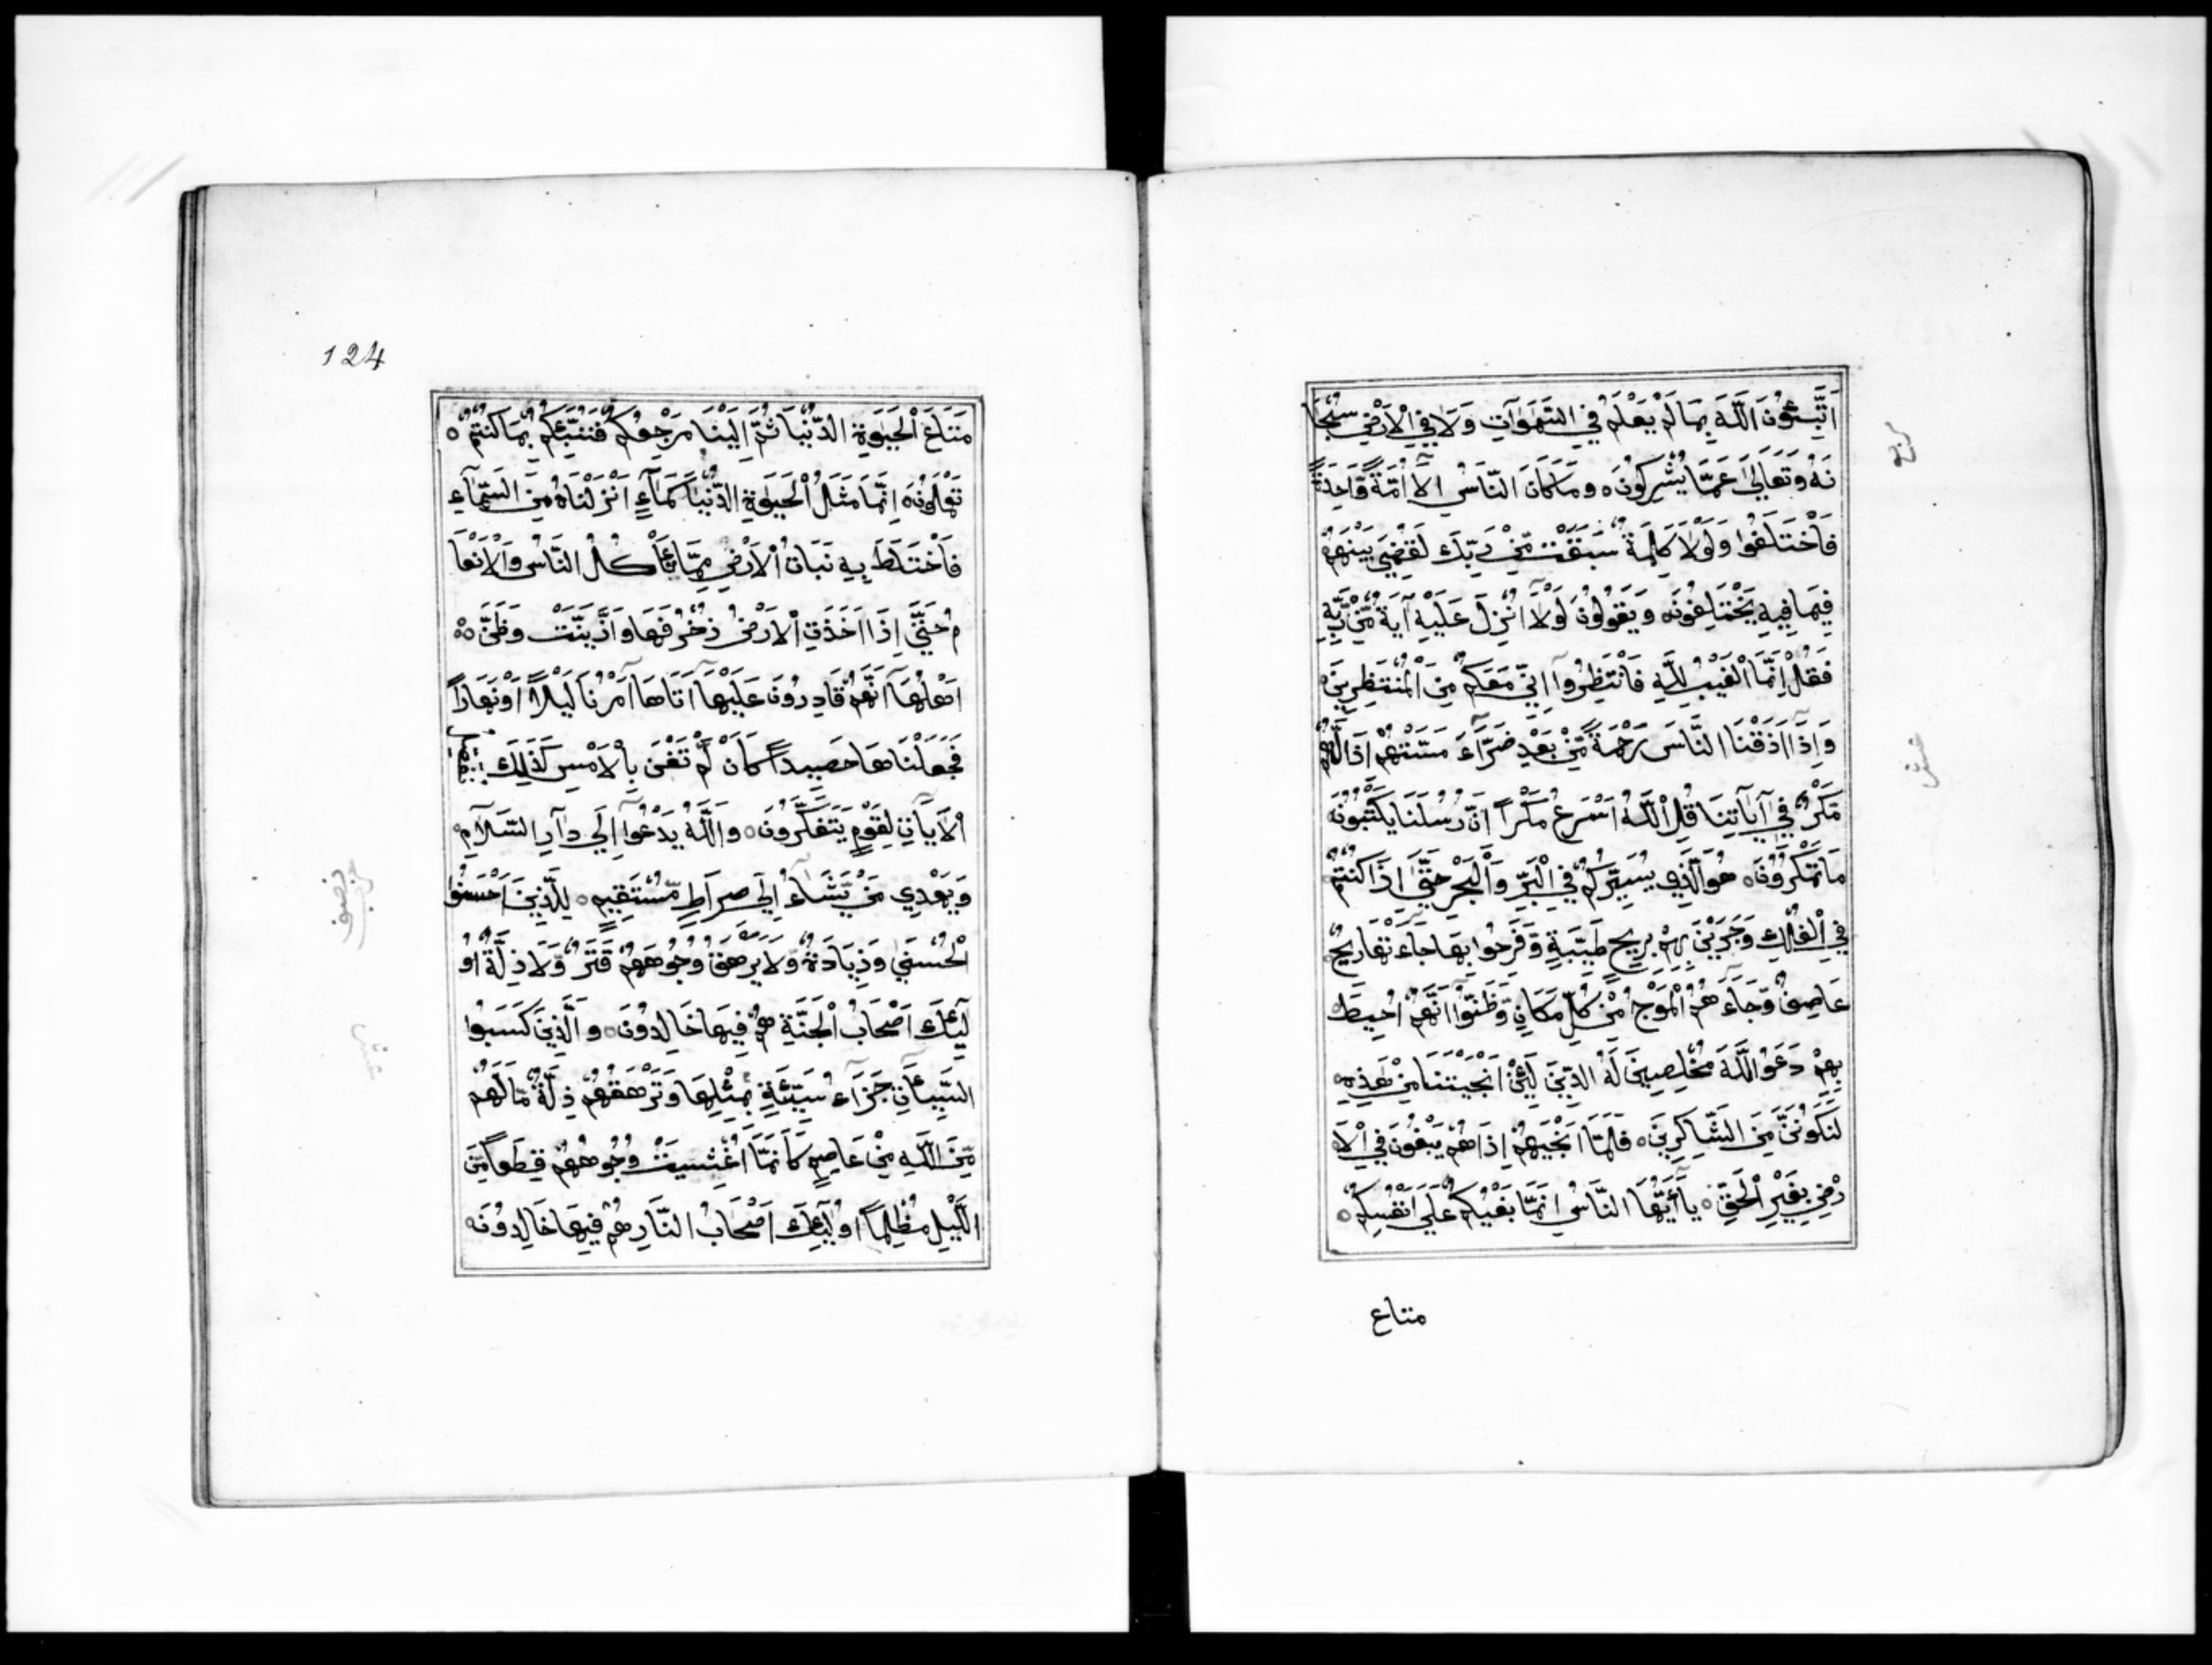 اَتُنَبِّئُونَ اللّٰهَ بِمَا لَمْ يَعْلَمُ فِي السَّمٰوَاتِ وَلَا فِي الْاَرْضِ سُبْحَا
نَهُ وَتَعَالَىٰ عَمَّا يُشْرِكُونَ ۝ وَمَا كَانَ النَّاسُ اِلَّا اُمَّةً وَّاحِدَةً
فَاخْتَلَفُوا وَلَوْلَا كَلِمَةٌ سَبَقَتْ مِنْ رَبِّكَ لَقُضِيَ بَيْنَهُمْ
فِيمَا فِيهِ يَخْتَلِفُونَ ۝ وَيَقُولُونَ لَوْلَا اُنْزِلَ عَلَيْهِ اٰيَةٌ مِّنْ رَّبِّهِ
فَقُلْ اِنَّمَا الْغَيْبُ لِلّٰهِ فَانْتَظِرُوا اِنِّي مَعَكُمْ مِنَ الْمُنْتَظِرِينَ ۝
وَاِذَا اَذَقْنَا النَّاسَ رَحْمَةً مِّنْ بَعْدِ ضَرَّاءَ مَسَّتْهُمْ اِذَا لَهُمْ
مَكْرٌ فِي اٰيَاتِنَا قُلِ اللّٰهُ اَسْرَعُ مَكْرًا اِنَّ رُسُلَنَا يَكْتُبُونَ
مَا تَمْكُرُونَ ۝ هُوَ الَّذِي يُسَيِّرُكُمْ فِي الْبَرِّ وَالْبَحْرِ حَتَّىٰ اِذَا كُنْتُمْ
فِي الْفُلْكِ وَجَرَيْنَ بِهِمْ بِرِيحٍ طَيِّبَةٍ وَّفَرِحُوا بِهَا جَاءَتْهَا رِيحٌ
عَاصِفٌ وَّجَاءَهُمُ الْمَوْجُ مِنْ كُلِّ مَكَانٍ وَّظَنُّوا اَنَّهُمْ اُحِيطَ
بِهِمْ دَعَوُا اللّٰهَ مُخْلِصِينَ لَهُ الدِّينَ لَئِنْ اَنْجَيْتَنَا مِنْ هٰذِهِ
لَنَكُونَنَّ مِنَ الشَّاكِرِينَ ۝ فَلَمَّا اَنْجٰيهُمْ اِذَا هُمْ يَبْغُونَ فِي الْاَ
رْضِ بِغَيْرِ الْحَقِّ ۝ يَا اَيُّهَا النَّاسُ اِنَّمَا بَغْيُكُمْ عَلَىٰ اَنْفُسِكُمْ ۝
متاع
عشر
124
مَتَاعَ الْحَيٰوةِ الدُّنْيَا ثُمَّ اِلَيْنَا مَرْجِعُكُمْ فَنُنَبِّئُكُمْ بِمَا كُنْتُمْ ۝
تَعْمَلُونَ ۝ اِنَّمَا مَثَلُ الْحَيٰوةِ الدُّنْيَا كَمَاءٍ اَنْزَلْنَاهُ مِنَ السَّمَاءِ
فَاخْتَلَطَ بِهِ نَبَاتُ الْاَرْضِ مِمَّا يَأْكُلُ النَّاسُ وَالْاَنْعَا
مُ حَتَّىٰ اِذَا اَخَذَتِ الْاَرْضُ زُخْرُفَهَا وَازَّيَّنَتْ وَظَنَّ ۝
اَهْلُهَا اَنَّهُمْ قَادِرُونَ عَلَيْهَا اَتَاهَا اَمْرُنَا لَيْلًا اَوْ نَهَارًا
فَجَعَلْنَاهَا حَصِيدًا كَاَنْ لَّمْ تَغْنَ بِالْاَمْسِ كَذٰلِكَ
الْاٰيَاتِ لِقَوْمٍ يَتَفَكَّرُونَ ۝ وَاللّٰهُ يَدْعُوا اِلَىٰ دَارِ السَّلَامِ
وَيَهْدِي مَنْ يَّشَاءُ اِلَىٰ صِرَاطٍ مُّسْتَقِيمٍ ۝ لِلَّذِينَ اَحْسَنُوا
الْحُسْنَىٰ وَزِيَادَةٌ وَّلَا يَرْهَقُ وُجُوهَهُمْ قَتَرٌ وَّلَا ذِلَّةٌ اُو
لٰئِكَ اَصْحَابُ الْجَنَّةِ هُمْ فِيهَا خَالِدُونَ ۝ وَالَّذِينَ كَسَبُوا
السَّيِّئَاتِ جَزَاءُ سَيِّئَةٍ بِمِثْلِهَا وَتَرْهَقُهُمْ ذِلَّةٌ مَّا لَهُمْ
مِّنَ اللّٰهِ مِنْ عَاصِمٍ كَاَنَّمَا اُغْشِيَتْ وُجُوهُهُمْ قِطَعًا مِّنَ
اللَّيْلِ مُظْلِمًا اُولٰئِكَ اَصْحَابُ النَّارِ هُمْ فِيهَا خَالِدُونَ ۝
نصف
حزب
عشر